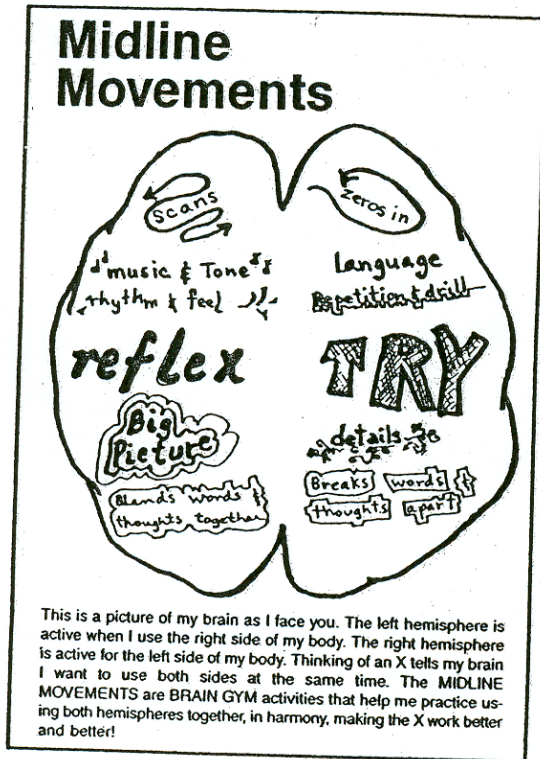 Midline
Movements
Scans
zeros in
music & Tone
rhythm & feel
Language
Repetition & drill
reflex
TRY
Big
Picture
details
Blends words &
thoughts together
Breaks words &
thoughts apart
This is a picture of my brain as I face you. The left hemisphere is
active when I use the right side of my body. The right hemisphere
is active for the left side of my body. Thinking of an X tells my brain
I want to use both sides at the same time. The MIDLINE
MOVEMENTS are BRAIN GYM activities that help me practice us-
ing both hemispheres together, in harmony, making the X work better
and better!